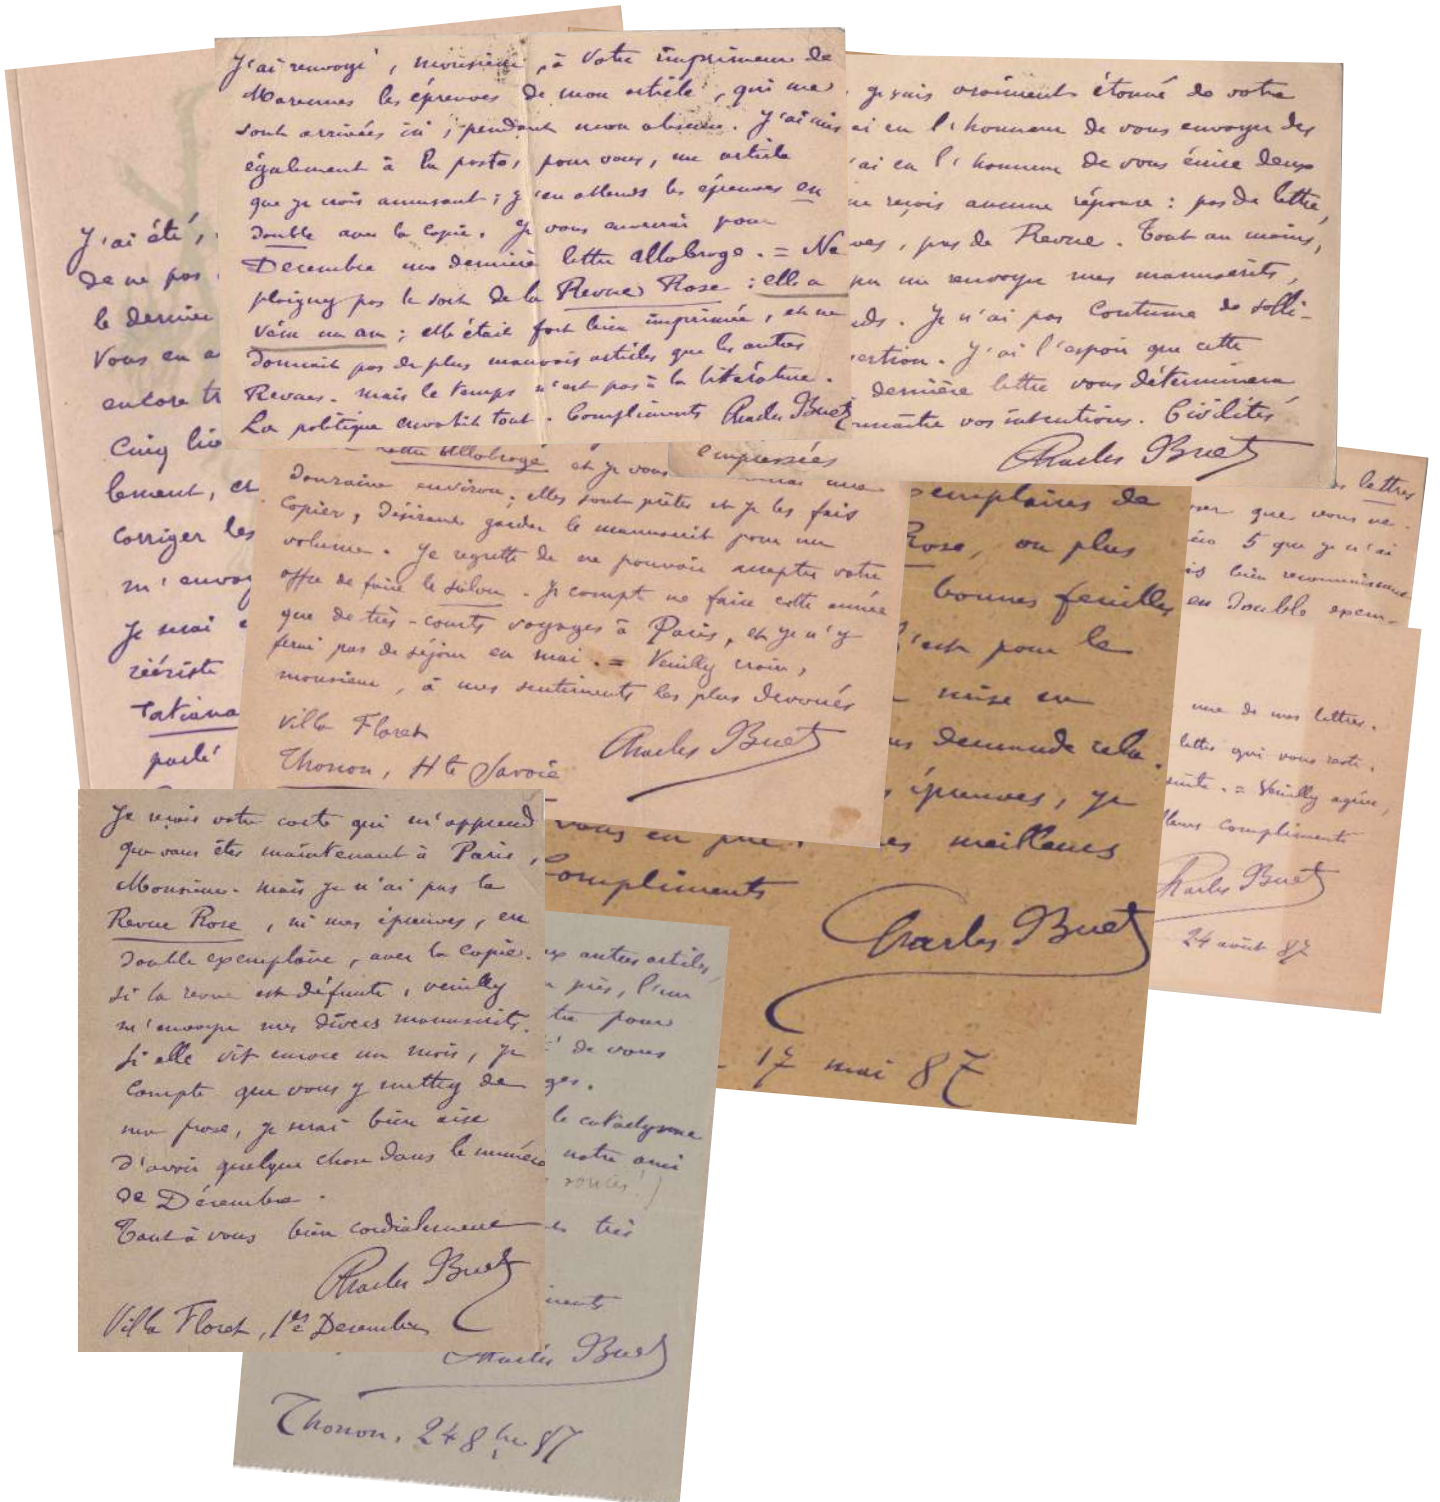 J'ai renvoyé, monsieur, à votre imprimeur de
Marennes les épreuves de mon article, qui me
sont arrivées ici, pendant mon absence. J'ai mis
également à la poste, pour vous, un article
que je crois amusant ; j'en attends les épreuves en
double avec la copie. Je vous enverrai pour
Décembre une dernière lettre allobroge. = Ne
plaignez pas le sort de la Revue Rose : elle a
vécu un an ; elle était fort bien imprimée, et ne
donnait pas de plus mauvais articles que les autres
Revues. mais le temps n'est pas à la littérature.
La politique envahit tout. Compliments Charles Buet
je suis vraiment étonné de votre
ai eu l'honneur de vous envoyer des
ai eu l'honneur de vous écrire deux
ne reçois aucune réponse : pas de lettre,
ves, pas de Revue. Tout au moins,
pu me renvoyer mes manuscrits,
ds. Je n'ai pas coutume de solli-
ertion. J'ai l'espoir que cette
dernière lettre vous déterminera
nnaître vos intentions. Civilités
empressées
Charles Buet
J'ai été,
de ne pas
le dernier
Vous en a
encore tr
Cinq
lement, et
corriger les
m'envoy
Je serai
réécrite
Tatiana
parlé
lettre allobroge et je vous
douzaine environ ; elles sont prêtes et je les fais
copier, désirant garder le manuscrit pour un
volume. Je regrette de ne pouvoir accepter votre
offre de faire le salon. Je compte ne faire cette année
que de très-courts voyages à Paris, et je n'y
ferai pas de séjour en mai. = Veuillez croire,
monsieur, à mes sentiments les plus dévoués
Charles Buet
Villa Floret
Thonon, Hte Savoie
exemplaires de
Rose, ou plus
bonnes feuilles
c'est pour le
mise en
us demande cela.
épreuves, je
vous en prie. es meilleurs
Compliments
Charles Buet
17 mai 87
lettres
ser que vous ne
éro 5 que je n'ai
is bien reconnaissant
en double exem-
une de mes lettres.
lettre qui vous reste.
suite. = Veuillez agréer,
lleurs compliments
Charles Buet
24 août 87
Je reçois votre carte qui m'apprend
que vous êtes maintenant à Paris,
Monsieur. mais je n'ai pas la
Revue Rose, ni mes épreuves, en
double exemplaire, avec la copie.
Si la revue est défunte, veuillez
m'envoyer mes divers manuscrits.
Si elle vit encore un mois, je
compte que vous y mettrez de
ma prose, je serai bien aise
d'avoir quelque chose dans le numéro
de Décembre.
Tout à vous bien cordialement
Charles Buet
Villa Floret, 1er Décembre
ux autres articles,
près, l'un
tre pour
de vous
ges.
le cataclysme
notre ami
très
iments
Charles Buet
Thonon, 24 8bre 87